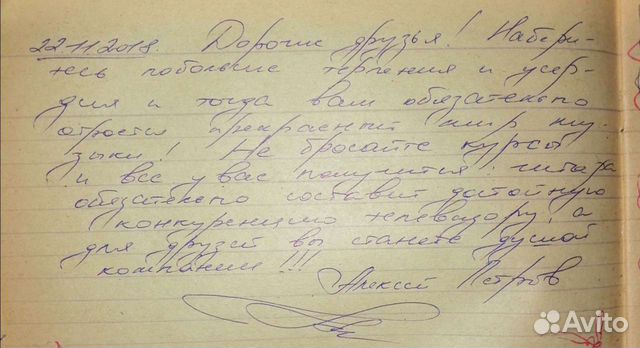 22.11.2018. Дорогие друзья! Набери-
тесь побольше терпения и усер-
дия и тогда вам обязательно
откроется прекрасный мир му-
зыки! Не бросайте курсы
и все у вас получится: гитара
обязательно составит достойную
конкуренцию телевизору, а
для друзей вы станете душой
компании!!!
Алексей Петров
Avito